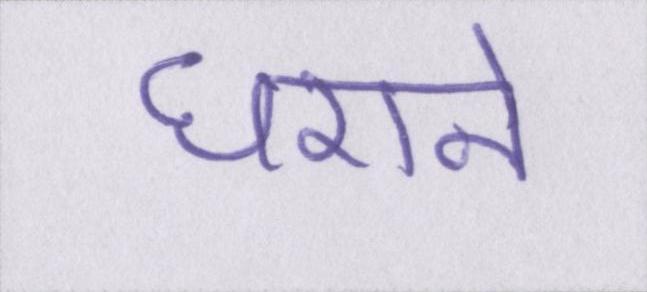 घराने